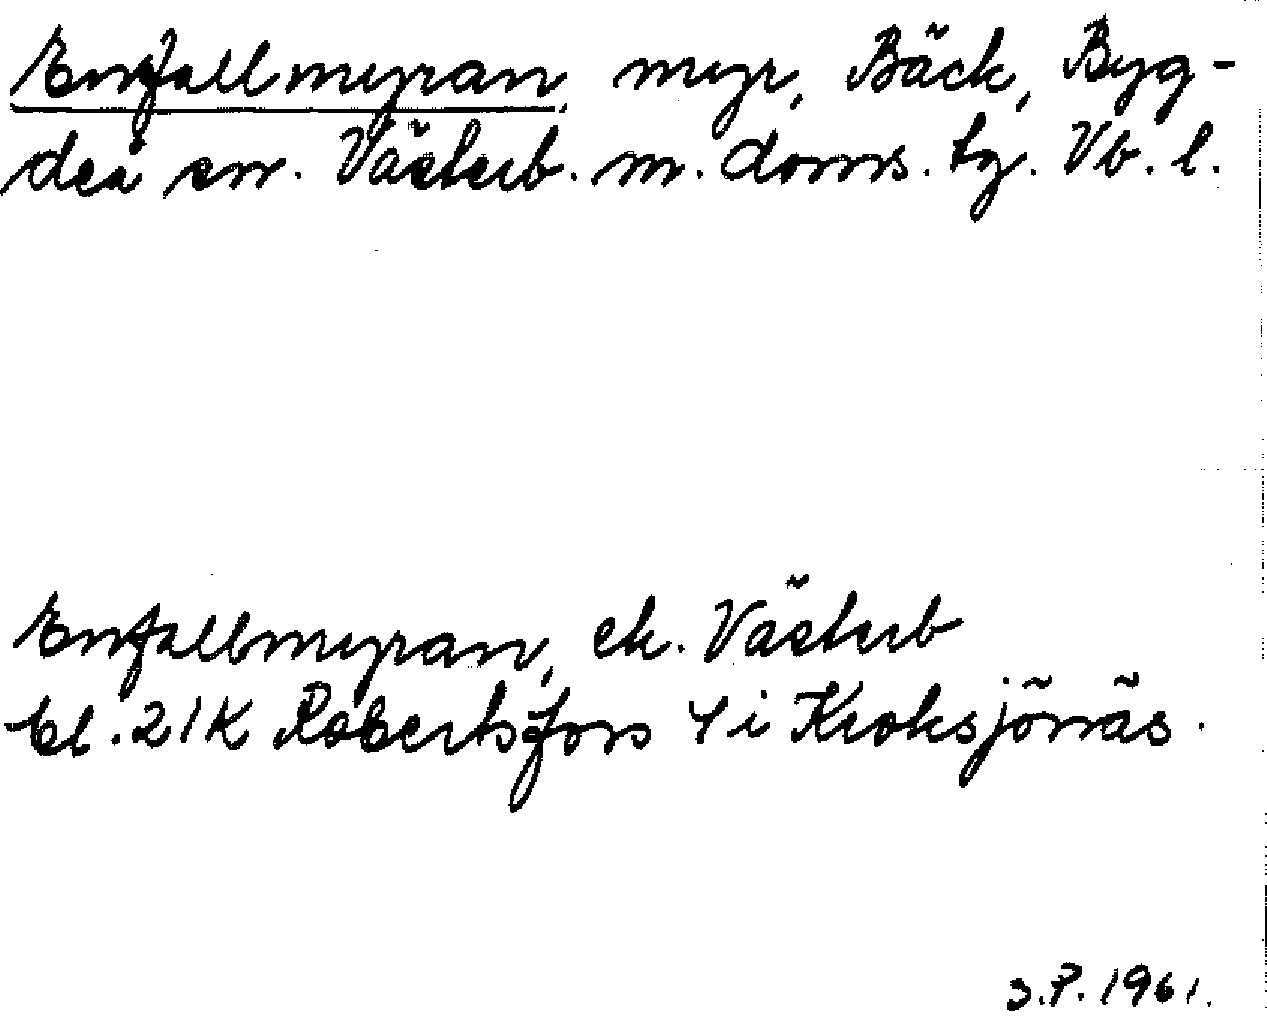 Enfallmyran, myr, Bäck, Byg-
deå sn. Västerb. m. doms. tg. Vb. l.
Enfallmyran, ek. Västerb
bl. 21K Robertsfors 4 i Kroksjönäs.
S.P. 1961.